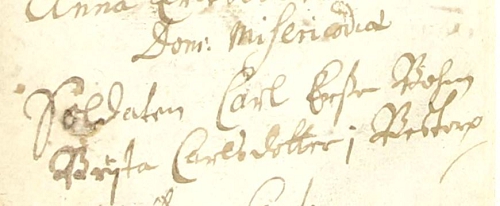 Anna
Dom: Misericodia
Soldaten Carl Bohm
Brijta Carlsdotter i Bestorp